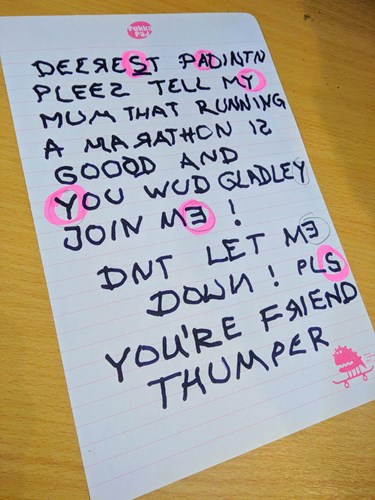 Pukka Pad
DEEREST PADINTN
PLEES TELL MY
MUM THAT RUNNING
A MARATHON IS
GOOOD AND
YOU WUD GLADLEY
JOIN ME !
DNT LET ME
DOWN ! PLS
YOU'RE FRIEND
THUMPER